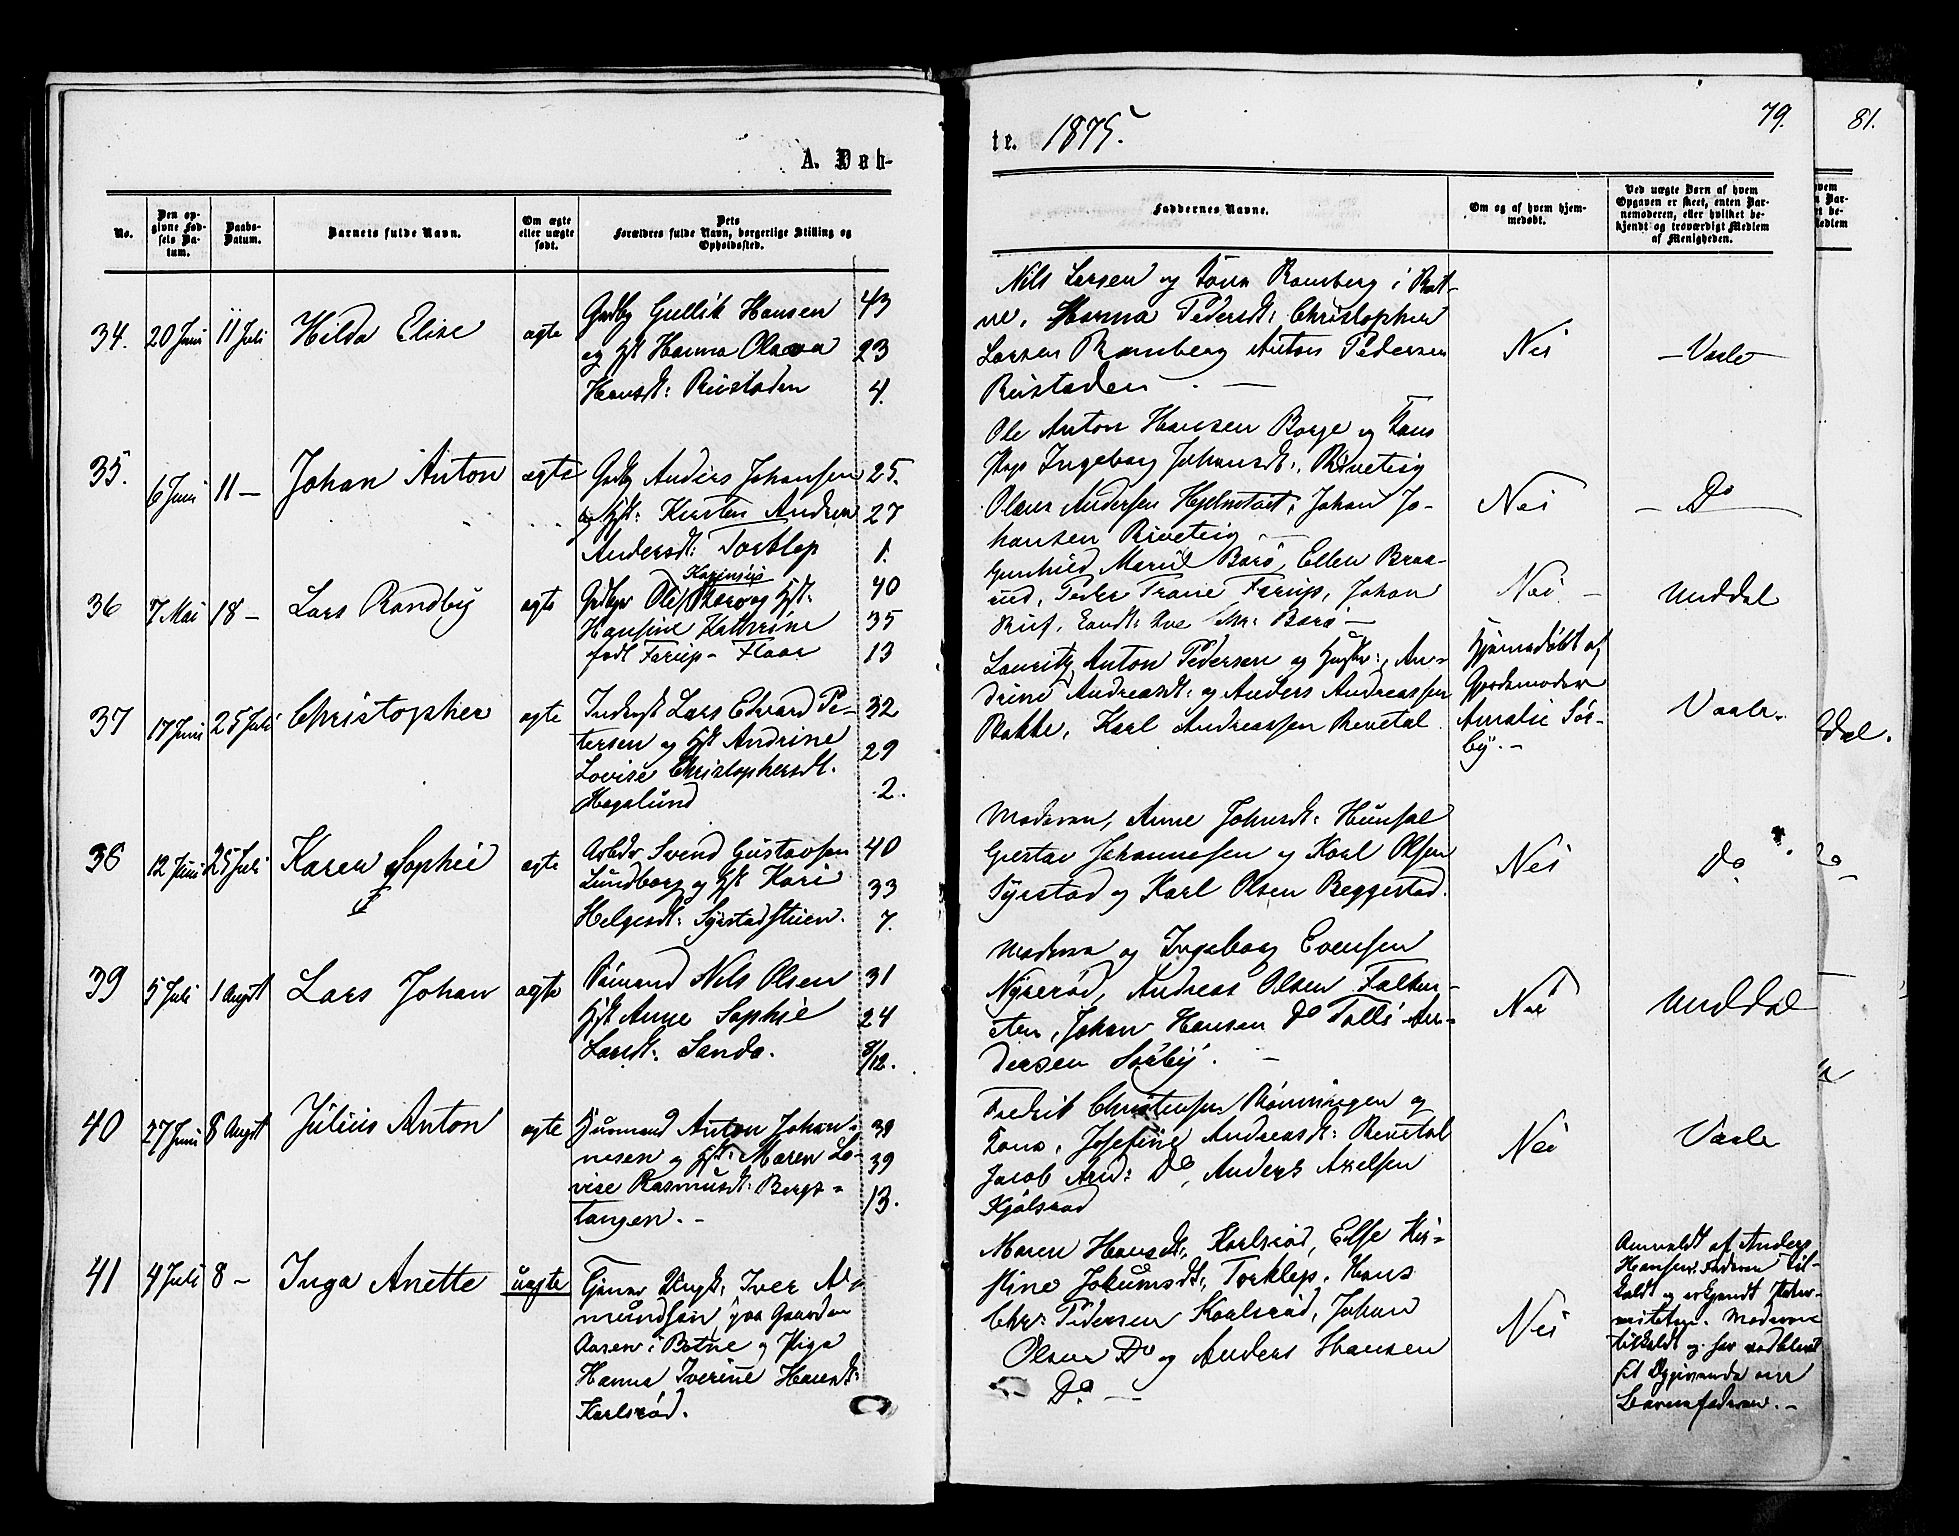 A. Døb-
te. 1875.
79.
81.
No.
Den op-
givne Fød-
sels Da-
tum.
Daabs-
Datum.
Barnets fulde Navn.
Om ægte
eller uægte
født.
Dets
Forældres fulde Navn, borgerlige Stilling og
Opholdssted.
Faddernes Navne.
Om og af hvem hjem-
medøbt.
Ved uægte Børn af hvem
Opgaven er skeet, enten Bar-
nemoderen, eller hvilket be-
kjendt og troværdigt Medlem
af Menigheden.
34. 20 Juni 11 Juli Hilda Elise ægte
Grdbr Gullik Hansen 43
og Hst Hanna Olava 23
Hansdt: Rustaden 4.
Nils Larsen og Kone Ramberg i Bot-
ne, Hanna Pedersdt: Christopher
Larsen Ramberg Anton Pedersen
Rustaden. —
Nei
— Vaale
35. 6 Juni 11 — Johan Anton ægte
Grdbr Anders Johansen 25.
og Hst: Kirsten Andrea 27
Andersdt: Torklep 1.
Ole Anton Hansen Borge og Kone
Pige Ingeborg Johansdt: Riveteig
Olaus Andersen Hjelmtvet, Johan Jo-
hansen Riveteig —
Nei
— Do —
36 7 Mai 18 — Lars Randbÿ ægte
Ole Barø og Hst: 40
Hansine Kathrine 35
født Farup - Flaar 13
Gunhild Marie Barø, Ellen Braa-
rud, Peder Trane Farup, Johan
Chr: Barø —
Nei —
Unddal
37 17 Juni 25 Juli Christopher ægte
Inderst Lars Edvard Pe- 32
tersen og Hst Andrine 29
Lovise Christophersdt. 2.
Hagalund
Lauritz Anton Pedersen og Hustr:, An-
drine Andreasdt: og Anders Andreassen
Bakke, Karl Andreassen Revetal
Hjemmedøbt af
Gjordemoder
Amalie Sør-
bÿ. -
Vaale.
38 12 Juni 25 Juli Karen Sophie ægte
Arbdr Svend Gustavsen 40
Lundborg og Hst Kari 33
Helgesdt: Syrstadstuen. 7.
Moderen, Anne Johnsdt: Hunsal
Gustav Johannesen og Karl Olsen
Syrstad og Karl Olsen Beggestad.
Nei
Do
39 5 Juli 1 Augst Lars Johan ægte
Sømand Nels Olsen 31
Hst Anne Sophie 24
Larsdt: Sande. 8/12.
Moderen og Ingeborg Evensen
Nyrerød, Andreas Olsen Falken-
sten, Johan Hansen Do An-
dersen Sørbÿ. —
Nei
Unddal
40 27 Juni 8 Augst Julius Anton ægte
Husmand Anton Johan- 39
nesen og Hst: Maren Lo- 39
vise Rasmusdt: Bergs- 13.
tangen. -
Fredrik Christensen Rønningen og
Kone, Josefine Andreasdt: Revetal
Jacob And: Do, Anders Axelsen
Kjølsrød
Nei
Vaale
41 4 Juli 8 — Inga Anette uægte
Tjener Ungk: Iver A-
mundsen, paa Gaarden
Aasen i Botne og Pige
Hanna Iverine Hansdt:
Karlsrød.
Maren Hansdt:, Karlsrød, Else Kir-
stine Jokumsdt:, Torklep, Hans
Chr: Pedersen Karlsrød, Johan
Olsen Do og Anders Hansen
Do —
Nei
Anmeldt af Anders
Hansen. Faderen til-
kaldt og erkjendt Pater-
nitetet. Moderen
tilkaldt og har vedblevet
sit Opgivende om
Barnefaderen. -